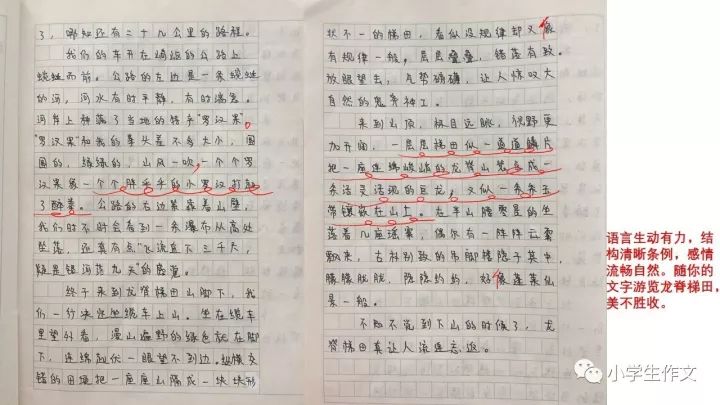 了，哪知还有二十几公里的路程。
我们的车开在崎岖的公路上
蜿蜒而前。公路的左边是一条蜿蜒
的河，河水有时平静，有时湍急。
河岸上种满了当地的特产“罗汉果”。
“罗汉果”和我的拳头差不多大小，圆
圆的，绿绿的，山风一吹，一个个罗
汉果象一个个胖乎乎的小罗汉打起
了醉拳。公路的右边紧靠着山壁，
我们时不时会看到一条瀑布从高处
坠落，还真有点“飞流直下三千尺，
疑是银河落九天”的感觉。
终于来到龙脊梯田山脚下，我
们一行决定坐缆车上山。坐在缆车
里望外看，漫山遍野的绿色就在脚
下，连绵起伏一眼望不到边。纵横交
错的田埂把一座座山隔成一块块形
状不一的梯田，看似没规律却又像
有规律一般，层层叠叠，错落有致。
放眼望去，气势磅礴，让人惊叹大
自然的鬼斧神工。
来到山顶，极目远眺，视野更
加开阔，一层层梯田似一道道鳞片
把一座连绵峻峭的龙脊山装点成一
条活灵活现的巨龙，又似一条条玉
带镶嵌在山上。在半山腰零星的坐
落着几座瑶寨，偶尔有一阵阵云雾
飘来，古朴别致的吊脚楼隐于其中，
朦朦胧胧，隐隐约约，好像蓬莱仙
景一般。
不知不觉到下山的时候了，龙
脊梯田真让人流连忘返。
语言生动有力，结
构清晰条例，感情
流畅自然。随你的
文字游览龙脊梯田，
美不胜收。
小学生作文